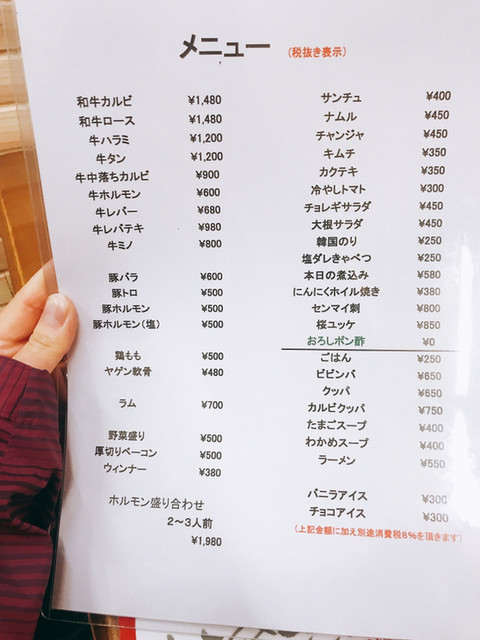 メニュー (税抜き表示)
和牛カルビ ¥1,480
和牛ロース ¥1,480
牛ハラミ ¥1,200
牛タン ¥1,200
牛中落ちカルビ ¥900
牛ホルモン ¥600
牛レバー ¥680
牛レバテキ ¥980
牛ミノ ¥800
豚バラ ¥600
豚トロ ¥500
豚ホルモン ¥500
豚ホルモン(塩) ¥500
鶏もも ¥500
ヤゲン軟骨 ¥480
ラム ¥700
野菜盛り ¥500
厚切りベーコン ¥500
ウィンナー ¥380
ホルモン盛り合わせ
2～3人前
¥1,980
サンチュ ¥400
ナムル ¥450
チャンジャ ¥450
キムチ ¥350
カクテキ ¥350
冷やしトマト ¥300
チョレギサラダ ¥450
大根サラダ ¥450
韓国のり ¥250
塩ダレきゃべつ ¥250
本日の煮込み ¥580
にんにくホイル焼き ¥380
センマイ刺 ¥800
桜ユッケ ¥850
おろしポン酢 ¥0
ごはん ¥250
ビビンバ ¥650
クッパ ¥650
カルビクッパ ¥750
たまごスープ ¥400
わかめスープ ¥400
ラーメン ¥550
バニラアイス ¥300
チョコアイス ¥300
(上記金額に加え別途消費税8%を頂きます)